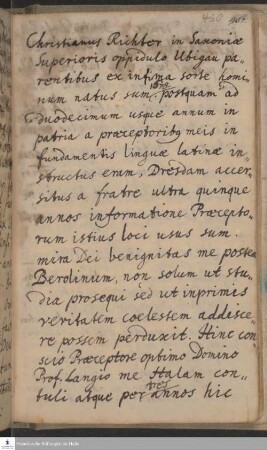 Christianus Richter in Saxoniæ
Superioris oppidulo Ubigau pa-
rentibus ex infima sorte homi-
num natus sum. postquam ad
duodecimum usque annum in
patria a præceptoribq meis in
fundamentis linguæ latinæ in-
structus eram, Dresdam accer-
situs a fratre ultra quinque
annos informatione Præcepto-
rum istius loci usus sum.
mira Dei benignitas me postea
Berolinum, non solum ut stu-
dia prosequi sed ut inprimis
veritatem coelestem addisce-
re possem perduxit. Hinc con-
scio Præceptore optimo Domino
Prof. Langio me Halam con-
tuli atque per tres annos hic